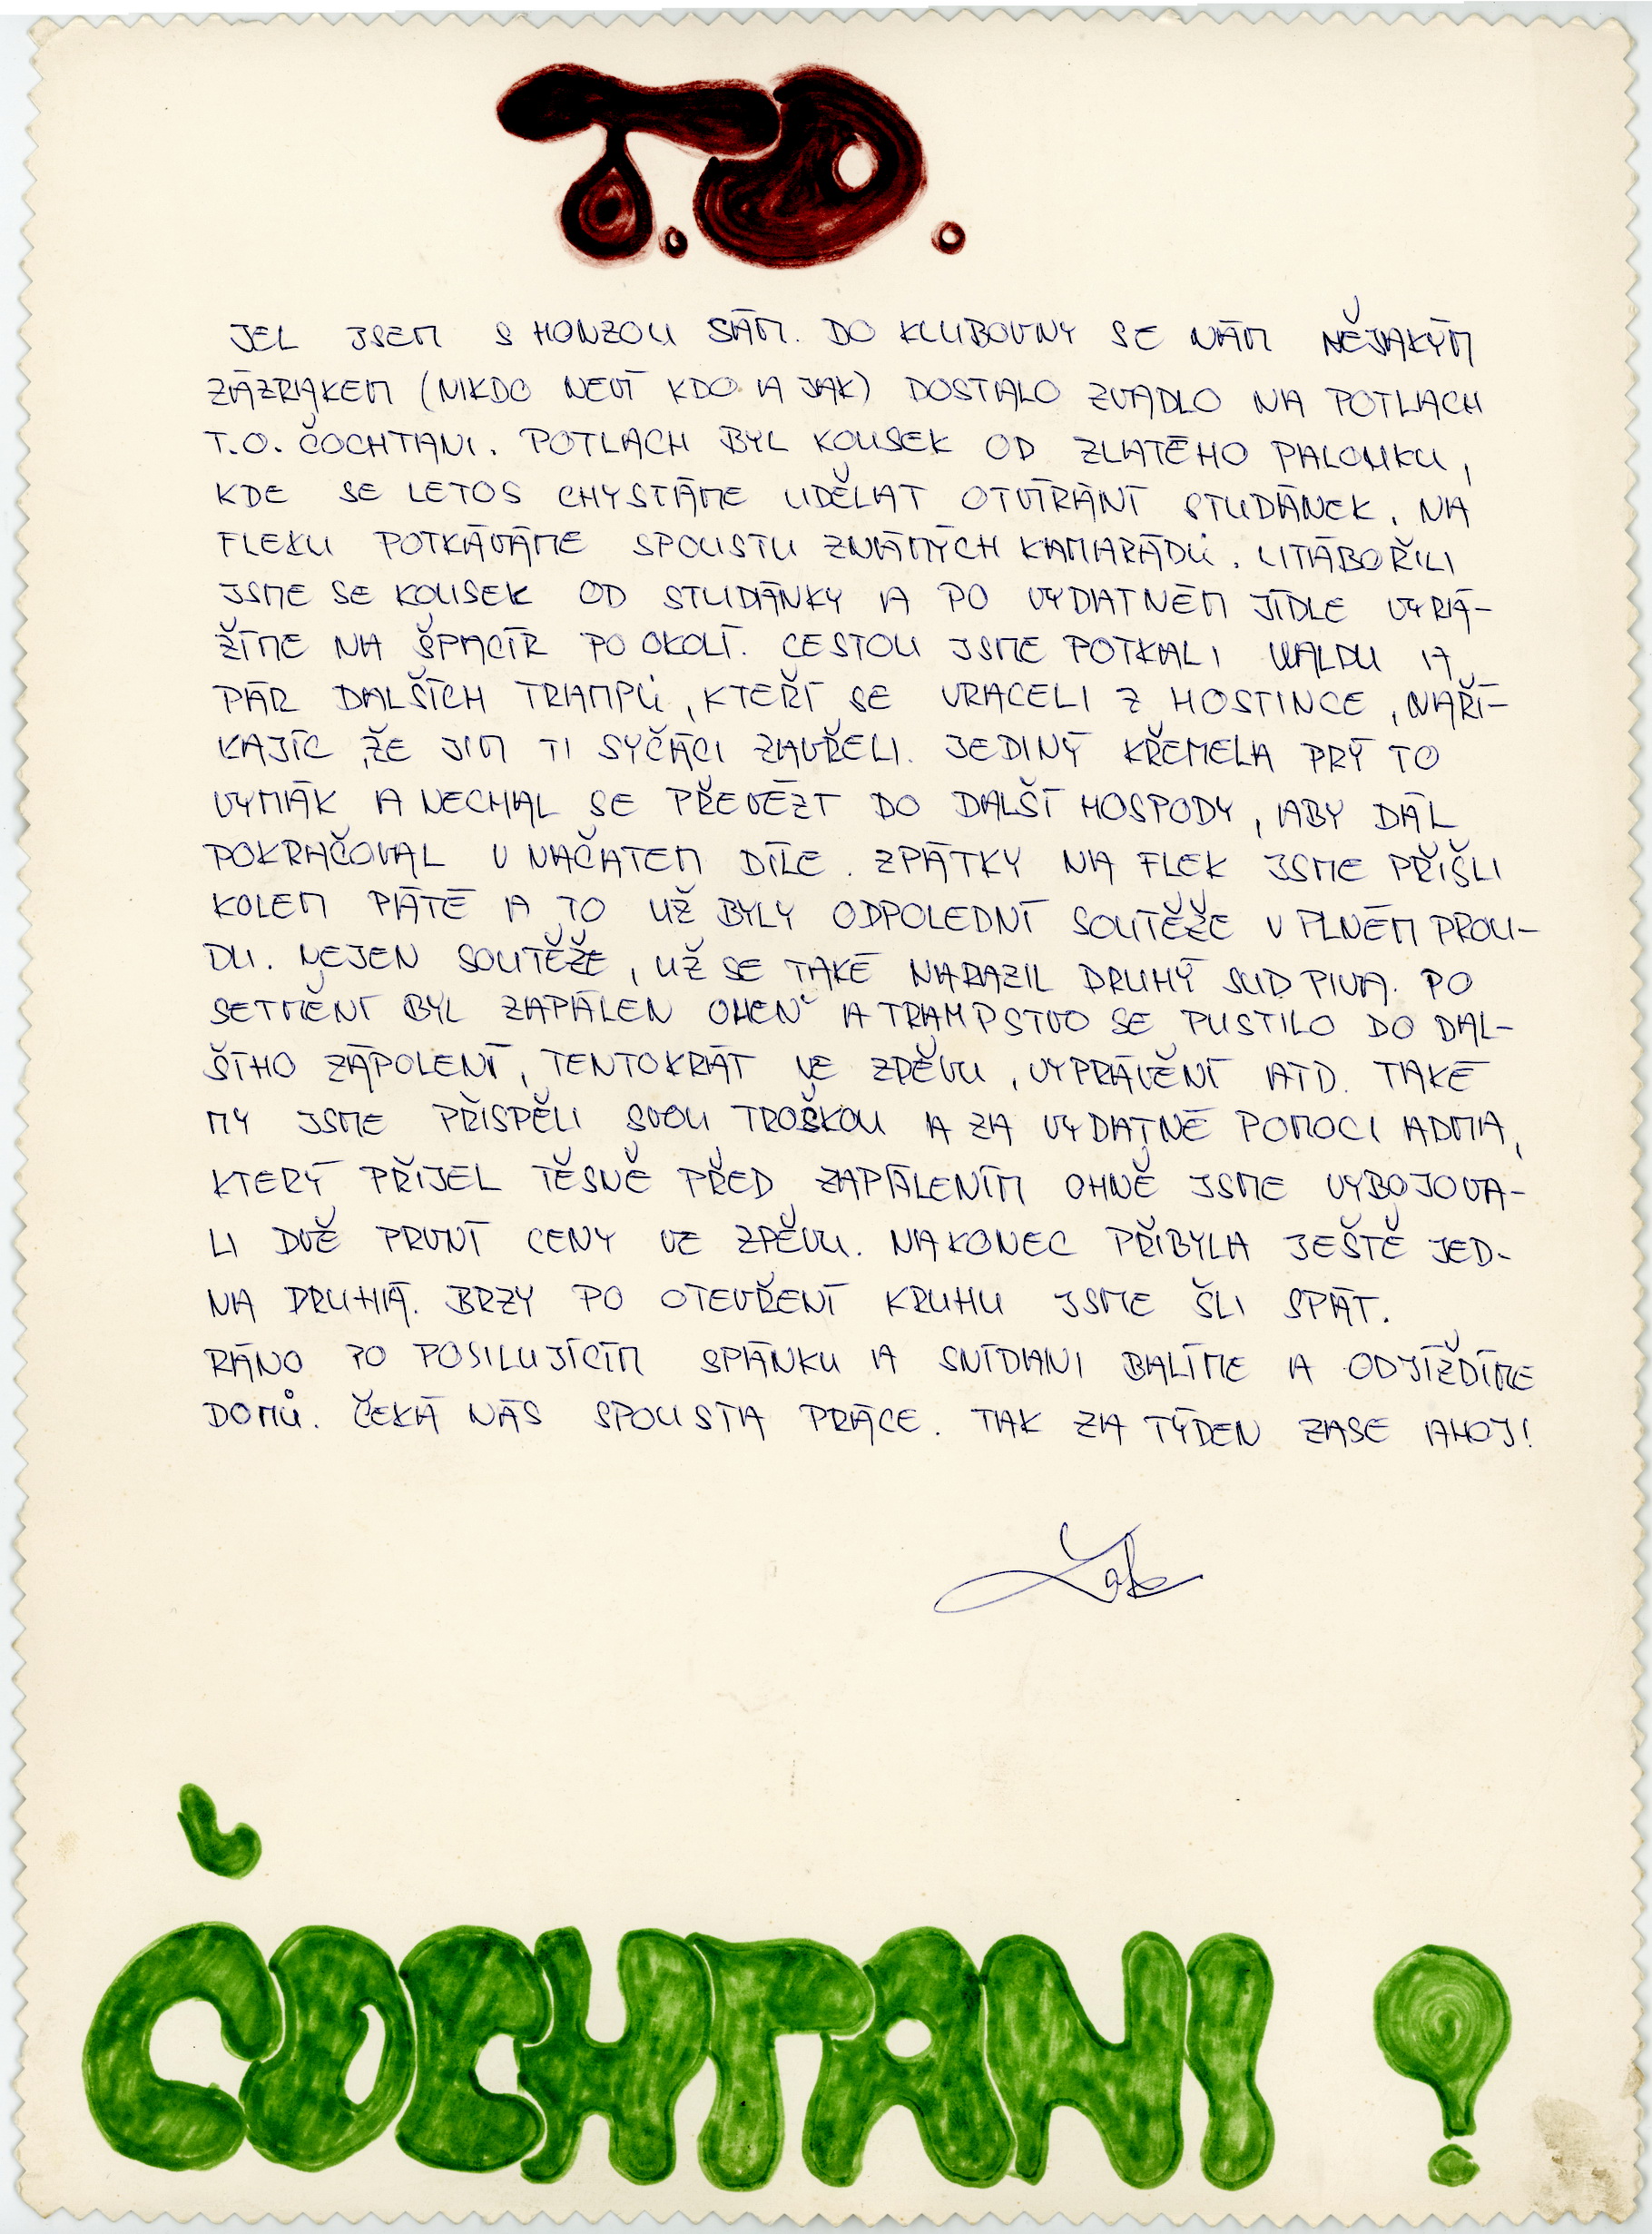 T.O.
JEL JSEM S HONZOU SÁM. DO KLUBOVNY SE NÁM NĚJAKÝM
ZÁZRAKEM (NIKDO NEVÍ KDO A JAK) DOSTALO ZVADLO NA POTLACH
T.O. ČOCHTANI. POTLACH BYL KOUSEK OD ZLATÉHO PALOUKU,
KDE SE LETOS CHYSTÁME UDĚLAT OTVÍRÁNÍ STUDÁNEK. NA
FLEKU POTKÁVÁME SPOUSTU ZNÁMÝCH KAMARÁDŮ. UTÁBOŘILI
JSME SE KOUSEK OD STUDÁNKY A PO VYDATNÉM JÍDLE VYRÁ-
ŽÍME NA ŠPACÍR PO OKOLÍ. CESTOU JSME POTKALI WALDU A
PÁR DALŠÍCH TRAMPŮ, KTEŘÍ SE VRACELI Z HOSTINCE, NAŘÍ-
KAJÍC, ŽE JIM TI SYČÁCI ZAVŘELI. JEDINÝ KŘEMELA PRÝ TO
VYMÁK A NECHAL SE PŘEVÉZT DO DALŠÍ HOSPODY, ABY DÁL
POKRAČOVAL V NAČATEM DÍLE. ZPÁTKY NA FLEK JSME PŘIŠLI
KOLEM PÁTÉ A TO UŽ BYLY ODPOLEDNÍ SOUTĚŽE V PLNÉM PROU-
DU. NEJEN SOUTĚŽE, UŽ SE TAKÉ NARAZIL DRUHÝ SUD PIVA. PO
SETMĚNÍ BYL ZAPÁLEN OHEŇ A TRAMPSTVO SE PUSTILO DO DAL-
ŠÍHO ZÁPOLENÍ, TENTOKRÁT VE ZPĚVU, VYPRÁVĚNÍ ATD. TAKÉ
MY JSME PŘISPĚLI SVOU TROŠKOU A ZA VYDATNÉ POMOCI ADMA,
KTERÝ PŘIJEL TĚSNĚ PŘED ZAPÁLENÍM OHNĚ JSME VYBOJOVA-
LI DVĚ PRVNÍ CENY VE ZPĚVU. NAKONEC PŘIBYLA JEŠTĚ JED-
NA DRUHÁ. BRZY PO OTEVŘENÍ KRUHU JSME ŠLI SPÁT.
RÁNO PO POSILUJÍCÍM SPÁNKU A SNÍDANI BALÍME A ODJÍŽDÍME
DOMŮ. ČEKÁ NÁS SPOUSTA PRÁCE. TAK ZA TÝDEN ZASE AHOJ!
ČOCHTANI !